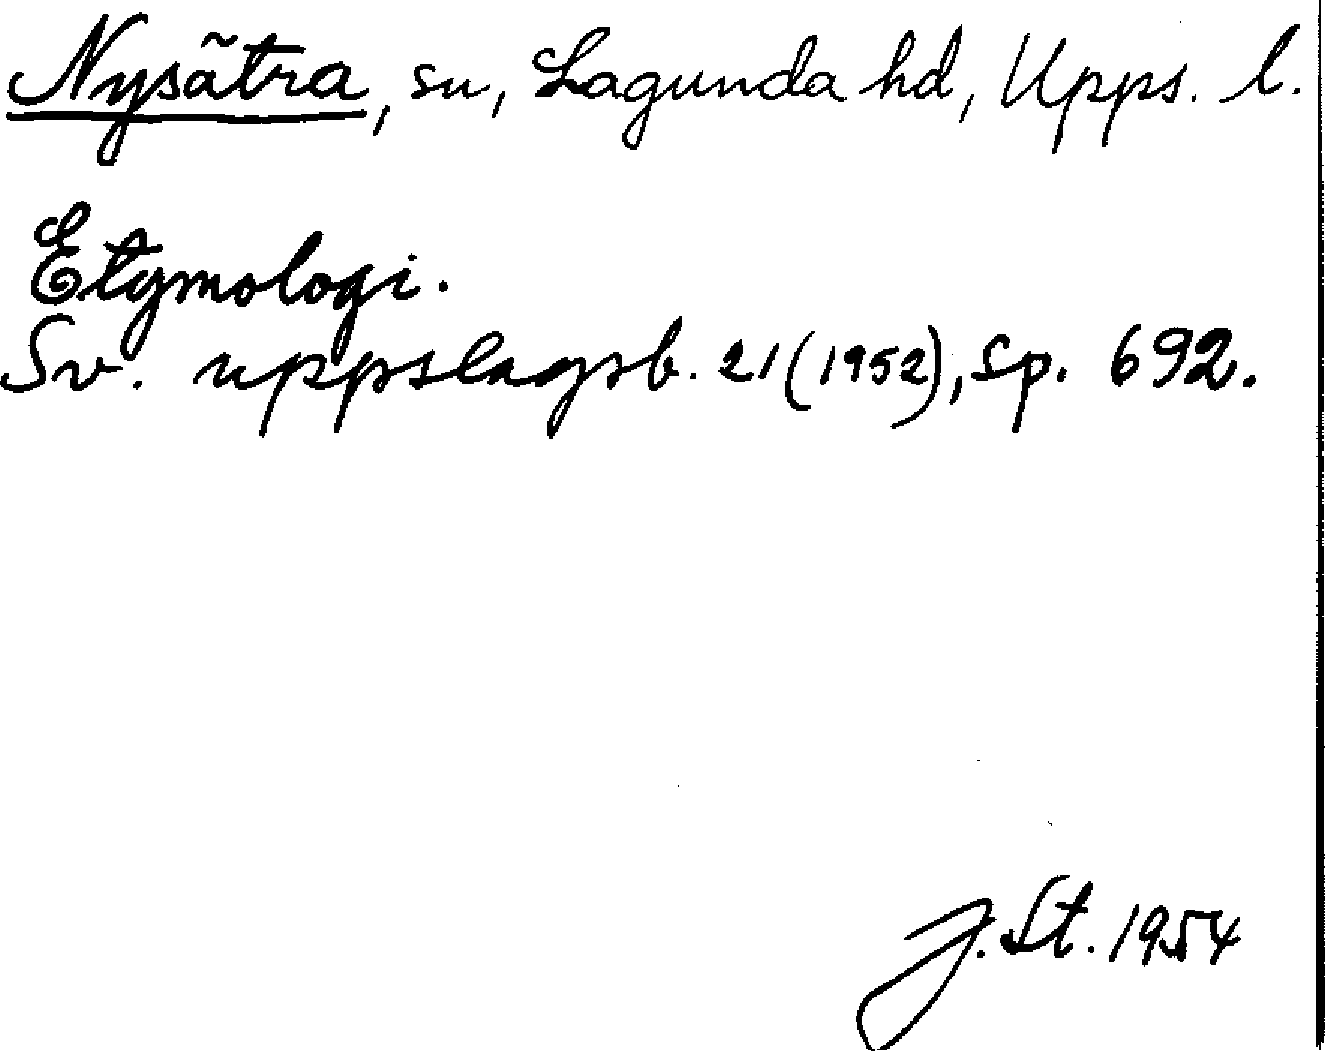 Nysätra, sn, Lagunda hd, Upps. l.
Etymologi.
Sv. uppslagsb. 21 (1952), sp. 692.
J. St. 1954